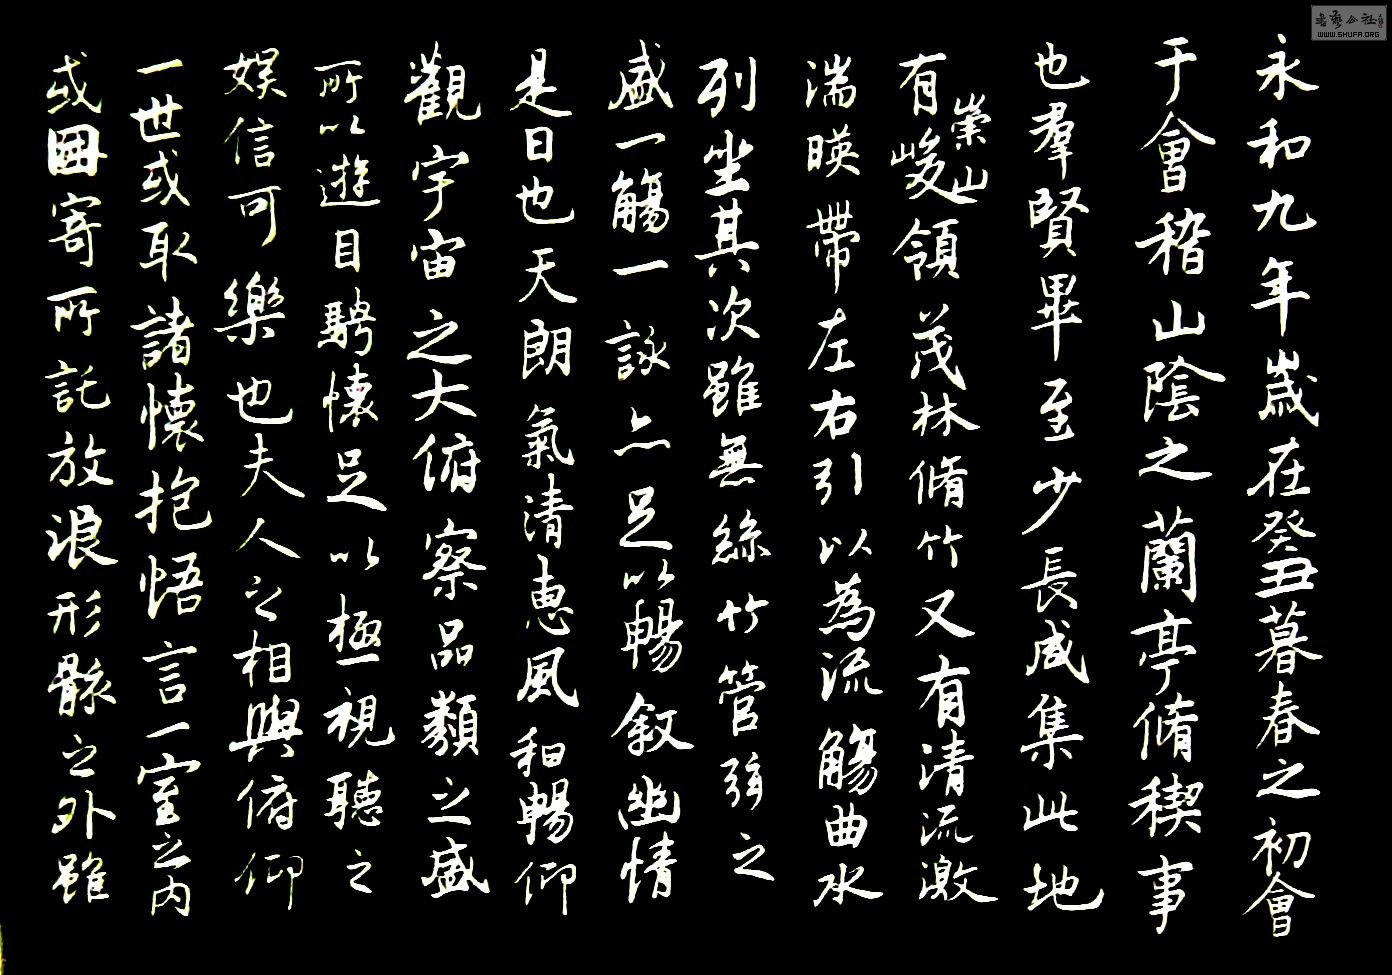 永和九年歲在癸丑暮春之初會
于會稽山陰之蘭亭脩稧事
也羣賢畢至少長咸集此地
有崇山峻領茂林脩竹又有清流激
湍暎帶左右引以為流觴曲水
列坐其次雖無絲竹管弦之
盛一觴一詠亦足以暢敘幽情
是日也天朗氣清惠風和暢仰
觀宇宙之大俯察品類之盛
所以遊目騁懷足以極視聽之
娛信可樂也夫人之相與俯仰
一世或取諸懷抱悟言一室之內
或因寄所託放浪形骸之外雖
書藝公社
WWW.SHUFA.ORG